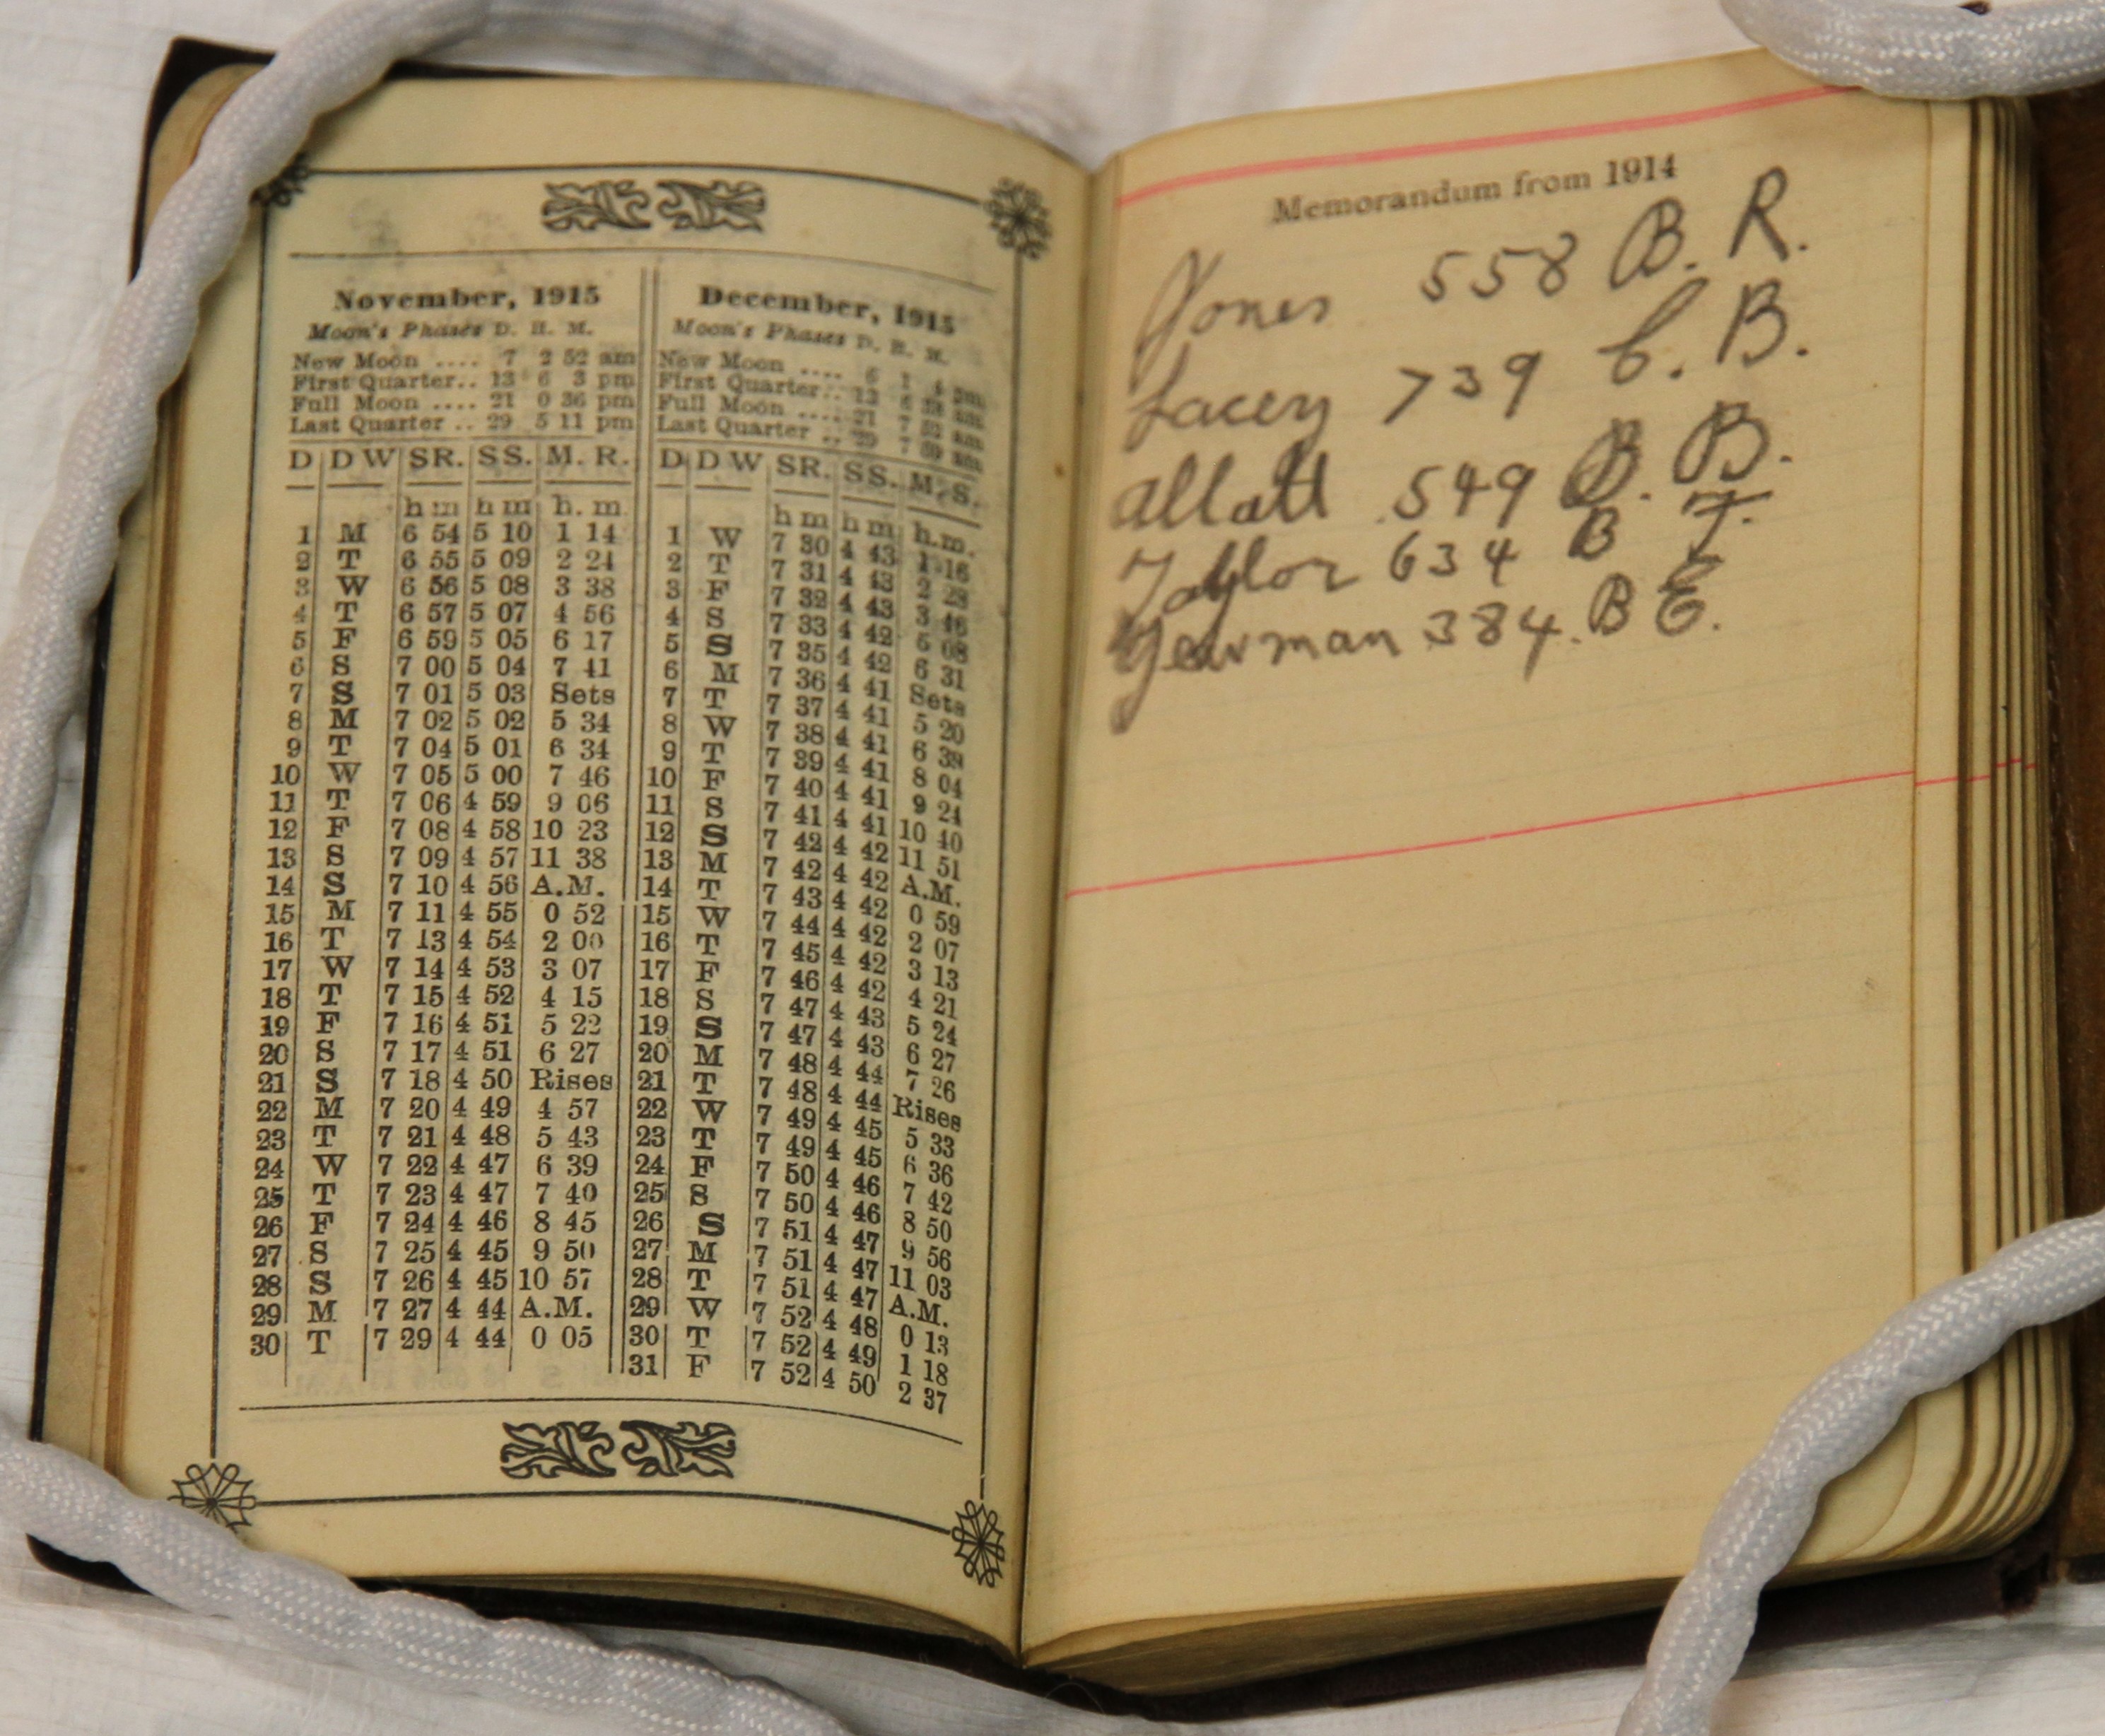 November, 1915
Moon's Phases D. H. M.
New Moon .... 7 2 52 am
First Quarter.. 13 6 3 pm
Full Moon .... 21 0 36 pm
Last Quarter .. 29 5 11 pm
D DW SR. SS. M. R.
h m h m h. m
1 M 6 54 5 10 1 14
2 T 6 55 5 09 2 24
3 W 6 56 5 08 3 38
4 T 6 57 5 07 4 56
5 F 6 59 5 05 6 17
6 S 7 00 5 04 7 41
7 S 7 01 5 03 Sets
8 M 7 02 5 02 5 34
9 T 7 04 5 01 6 34
10 W 7 05 5 00 7 46
11 T 7 06 4 59 9 06
12 F 7 08 4 58 10 23
13 S 7 09 4 57 11 38
14 S 7 10 4 56 A.M.
15 M 7 11 4 55 0 52
16 T 7 13 4 54 2 00
17 W 7 14 4 53 3 07
18 T 7 15 4 52 4 15
19 F 7 16 4 51 5 22
20 S 7 17 4 51 6 27
21 S 7 18 4 50 Rises
22 M 7 20 4 49 4 57
23 T 7 21 4 48 5 43
24 W 7 22 4 47 6 39
25 T 7 23 4 47 7 40
26 F 7 24 4 46 8 45
27 S 7 25 4 45 9 50
28 S 7 26 4 45 10 57
29 M 7 27 4 44 A.M.
30 T 7 29 4 44 0 05
December, 1915
Moon's Phases D. H. M.
New Moon .... 6 1 4 pm
First Quarter.. 13
Full Moon .... 21 7 52 am
Last Quarter .. 29 7 59 am
D DW SR. SS. M. S.
h m h m h.m.
1 W 7 30 4 43 1 16
2 T 7 31 4 43 2 28
3 F 7 32 4 43 3 46
4 S 7 33 4 42 5 08
5 S 7 35 4 42 6 31
6 M 7 36 4 41 Sets
7 T 7 37 4 41 5 20
8 W 7 38 4 41 6 39
9 T 7 39 4 41 8 04
10 F 7 40 4 41 9 24
11 S 7 41 4 41 10 40
12 S 7 42 4 42 11 51
13 M 7 42 4 42 A.M.
14 T 7 43 4 42 0 59
15 W 7 44 4 42 2 07
16 T 7 45 4 42 3 13
17 F 7 46 4 42 4 21
18 S 7 47 4 43 5 24
19 S 7 47 4 43 6 27
20 M 7 48 4 44 7 26
21 T 7 48 4 44 Rises
22 W 7 49 4 45 5 33
23 T 7 49 4 45 6 36
24 F 7 50 4 46 7 42
25 S 7 50 4 46 8 50
26 S 7 51 4 47 9 56
27 M 7 51 4 47 11 03
28 T 7 51 4 47 A.M.
29 W 7 52 4 48 0 13
30 T 7 52 4 49 1 18
31 F 7 52 4 50 2 37
Memorandum from 1914
Jones 558 B. R.
Lacey 739 C. B.
Allatt 549 B. B.
Taylor 634 B T.
Yewman 384. B E.